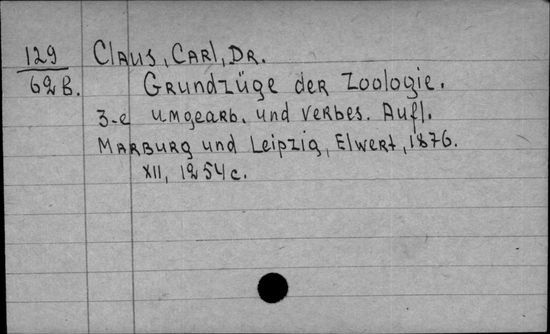 129 Claus, Carl, Dr.
62 B. Grundzüge der Zoologie.
3-e umgearb. und verbes. Aufl.
Marburg und Leipzig, Elwert, 1876.
XII, 1254 c.